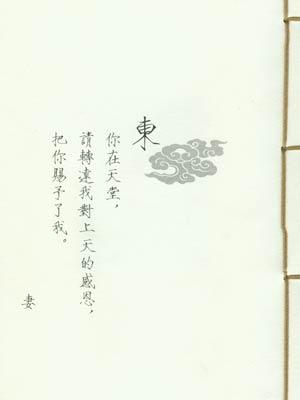 東
你在天堂，
請轉達我對上天的感恩，
把你賜予了我。
妻